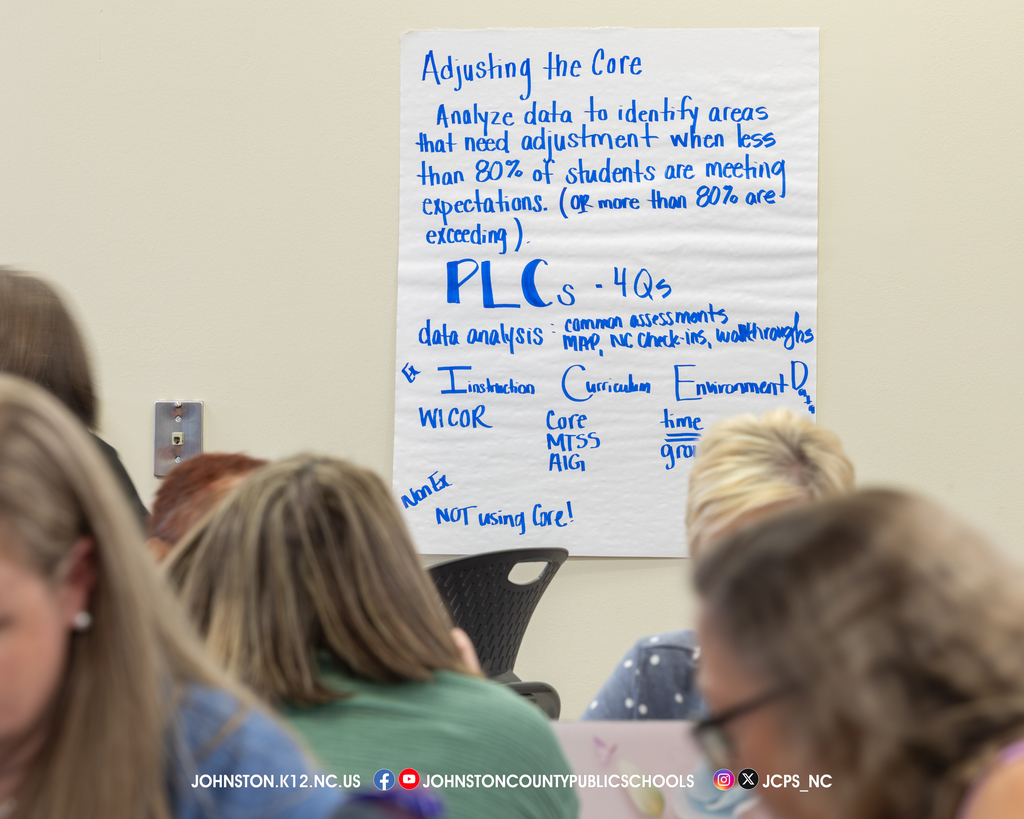 Adjusting the Core
Analyze data to identify areas
that need adjustment when less
than 80% of students are meeting
expectations. (OR more than 80% are
exceeding).
PLCs - 4Qs
data analysis: common assessments
MAP, NC Check-ins, walkthroughs
Ex Instruction Curriculum Environment Data
WICOR Core time
MTSS
AIG
Non Ex
NOT using Core!
JOHNSTON.K12.NC.US JOHNSTONCOUNTYPUBLICSCHOOLS JCPS_NC